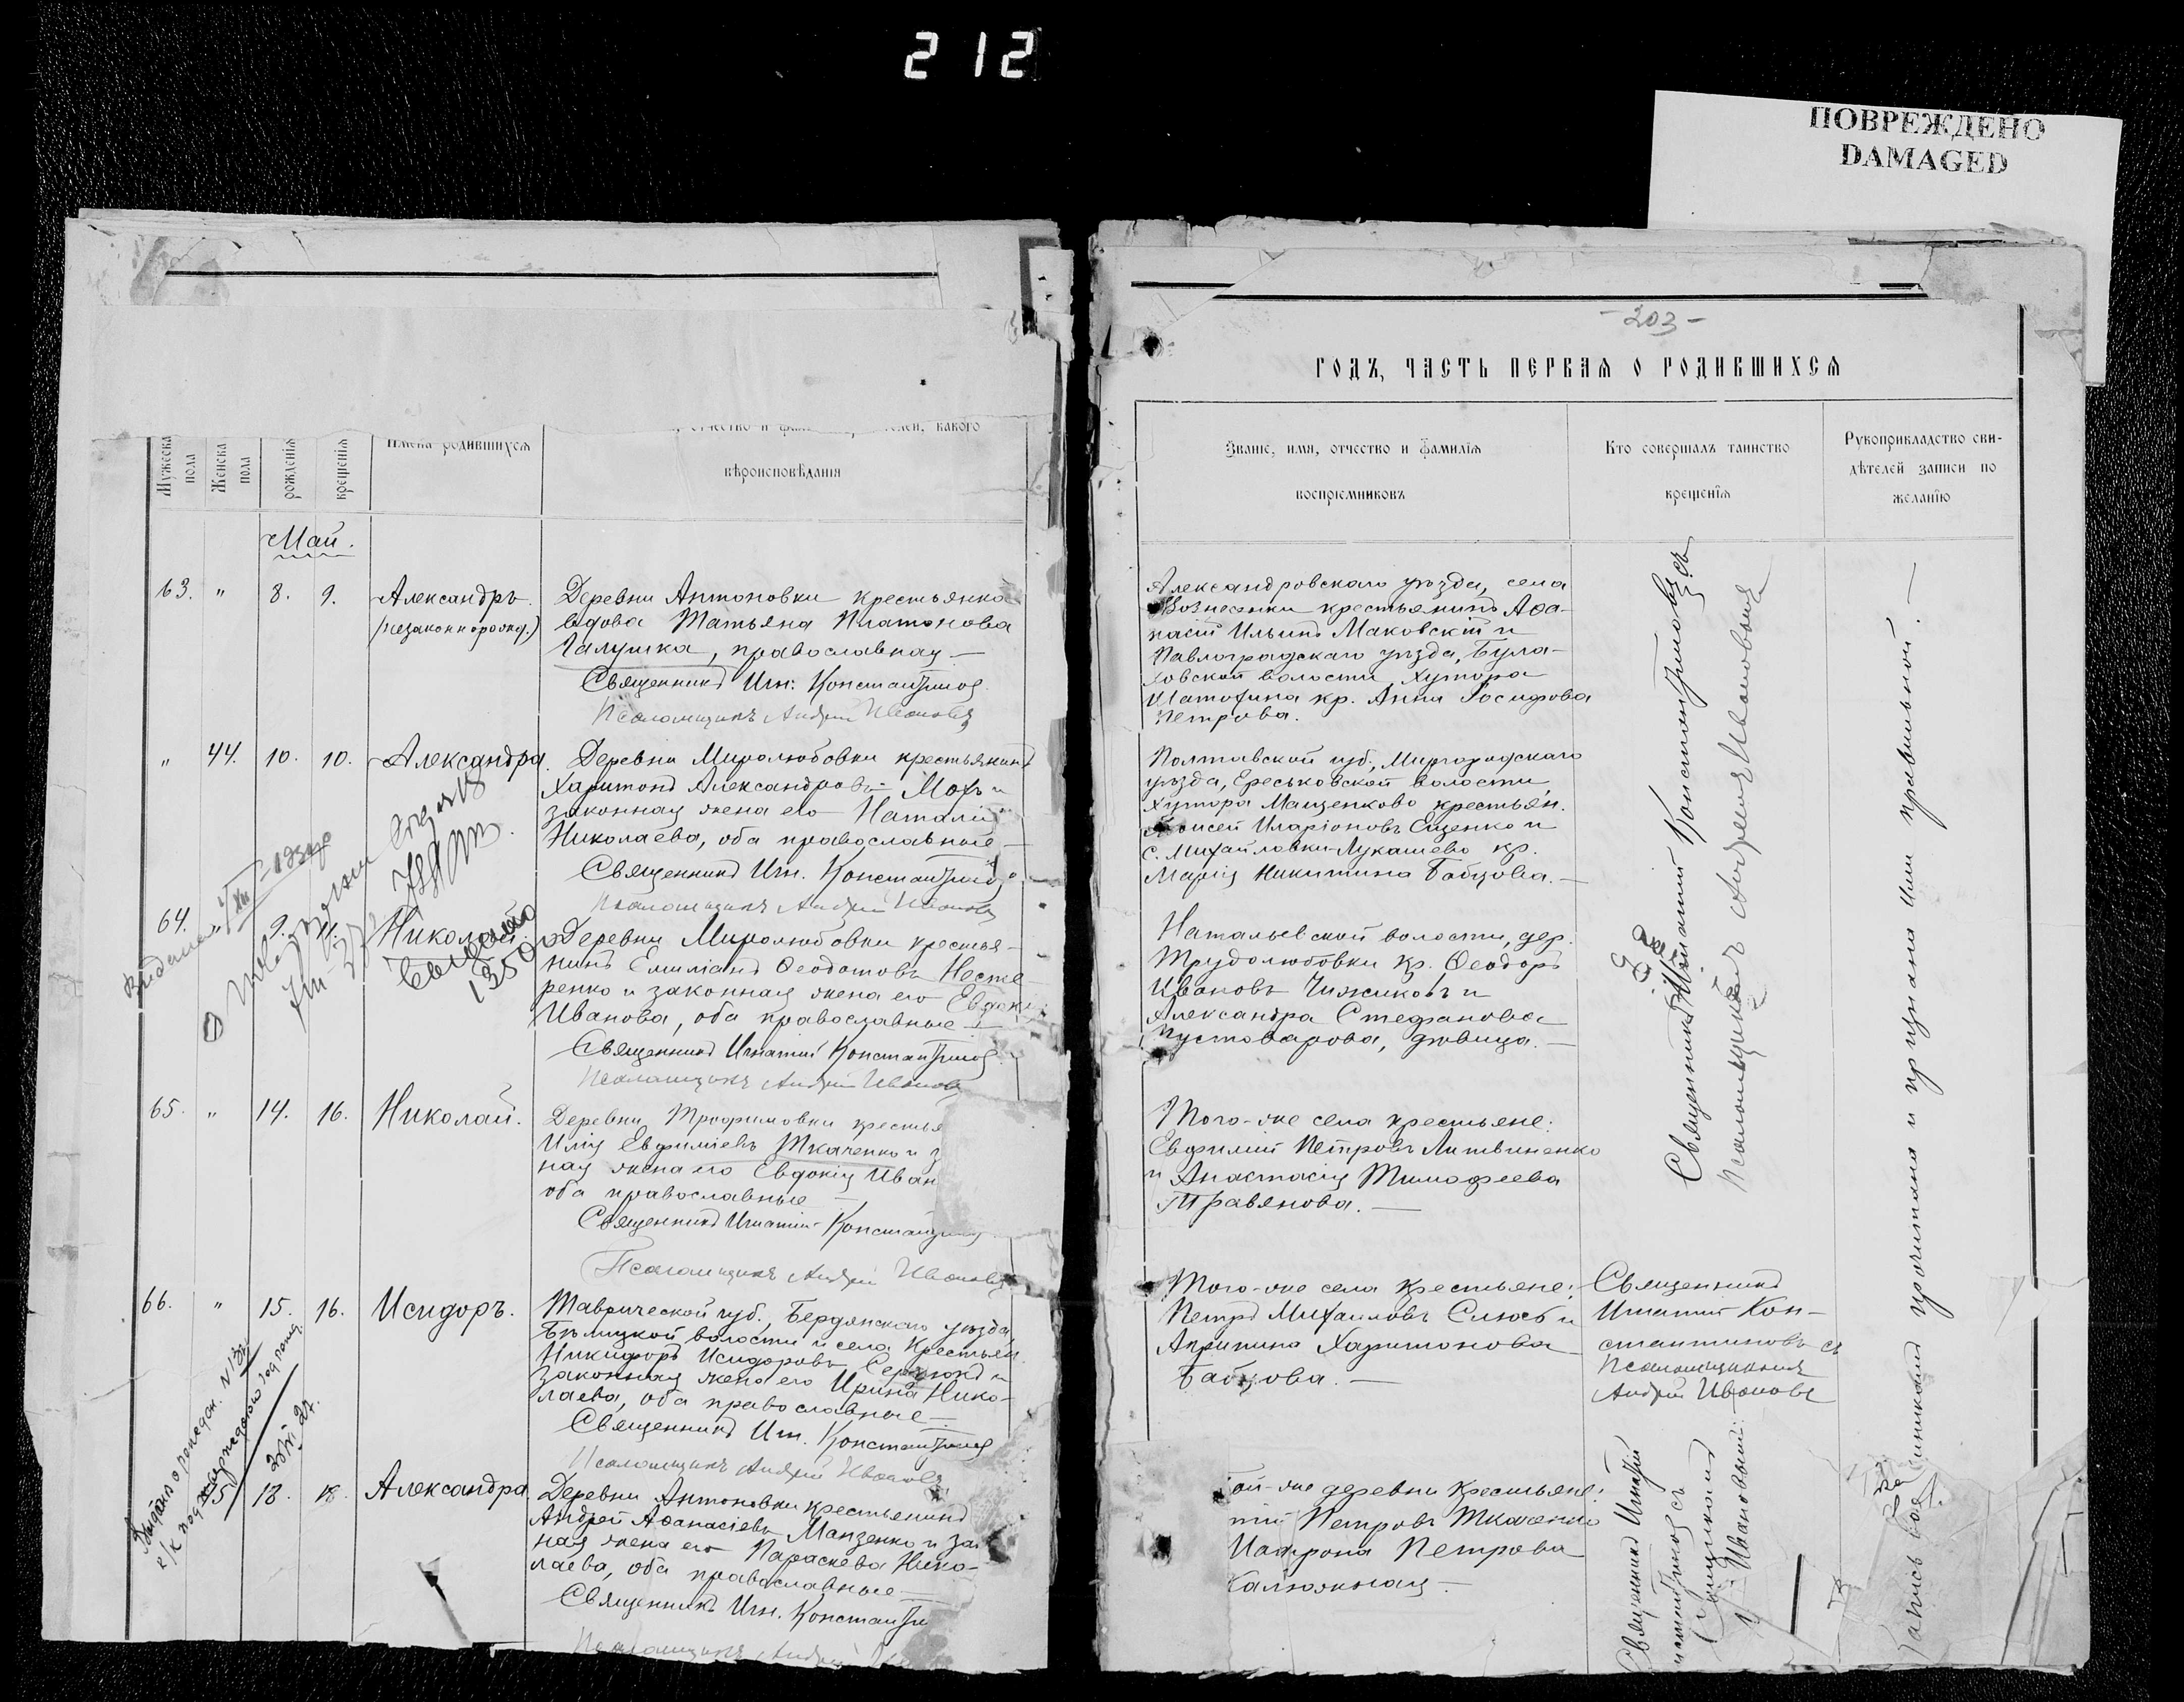 212
ПОВРЕЖДЕНО
DAMAGED
Мужеска пола
Женска пола
рождения
крещенія
Имена родившихся
отчество и какого
вѣроисповѣданія
Май.
63. " 8. 9. Александръ.
(незаконнорожд.)
Деревни Антоновки крестьянка
вдова Татьяна Платонова
Галушка, православная —
Священникъ Игн. Константиновъ
Псаломщикъ Андрей Ивановъ
" 44. 10. 10. Александра.
Деревни Миролюбовки крестьянинъ
Харитонъ Александровъ Мохъ и
законная жена его Наталія
Николаева, оба православные —
Священникъ Игн. Константиновъ
Псаломщикъ Андрей Ивановъ
64. " 9. 11. Николай.
Деревни Миролюбовки крестья-
нинъ Емиліанъ Ѳеодотовъ Несте-
ренко и законная жена его Евдокі
Иванова, оба православные —
Священникъ Игнатій Константиновъ
Псаломщикъ Андрей Ивановъ
65. " 14. 16. Николай.
Деревни Трофимовки крестья
Илія Евфиміевъ Ткаченко и з
ная жена его Евдокія Иван
оба православные —
Священникъ Игнатій Константиновъ
Псаломщикъ Андрей Ивановъ
66. " 15. 16. Исидоръ.
Таврической губ., Бердянскаго уѣзда,
волости и села крестьян.
Никифоръ Исидоровъ и
законная жена его Ирина Нико-
лаева, оба православные —
Священникъ Игн. Константиновъ
Псаломщикъ Андрей Ивановъ
18. 18. Александра.
Деревни Антоновки крестьянинъ
Андрей Аѳанасіевъ Манзенко и за
ная жена его Параскева Нико-
лаева, оба православные —
Священникъ Игн. Константи
Псаломщикъ Андрей
- 203 -
ГОДЪ, ЧАСТЬ ПЕРВАЯ О РОДИВШИХСЯ
Званіе, имя, отчество и фамилія
воспріемниковъ
Кто совершалъ таинство
крещенія
Рукоприкладство сви-
дѣтелей записи по
желанію
Александровскаго уѣзда, села
Вознесенки крестьянинъ Аѳа-
насій Ильинъ Маковскій и
Павлоградскаго уѣзда, Була-
ховской волости, хутора
кр. Анна Іосифова
Петрова.
Полтавской губ., Миргородскаго
уѣзда, Ереськовской волости,
хутора Мащенково крестьян.
Моисей Иларіоновъ Ещенко и
с. Михайловки-Лукашево кр.
Марія Никитина Бабцова. —
Натальевской волости, дер.
Трудолюбовки кр. Ѳеодоръ
Ивановъ Чижиковъ и
Александра Стефанова
Пустоварова, дѣвица. —
Того-же села крестьяне:
Евфимій Петровъ Литвиненко
и Анастасія Тимофеева
Травянова. —
Того-же села крестьяне:
Петръ Михаиловъ Слюсь и
Акрипина Харитонова
Бабцова. —
Священникъ
Игнатій Кон-
стантиновъ съ
Псаломщикомъ
Андрей Ивановъ
ой-же деревни крестьяне:
тій Петровъ Ткаченко
Матрона Петрова
Калюжная —
Священникъ Игнатій Константиновъ съ
Псаломщикомъ Андреемъ Ивановымъ
Священникъ Игнатій
Ивановымъ
прочитана и признана ими правильной. —